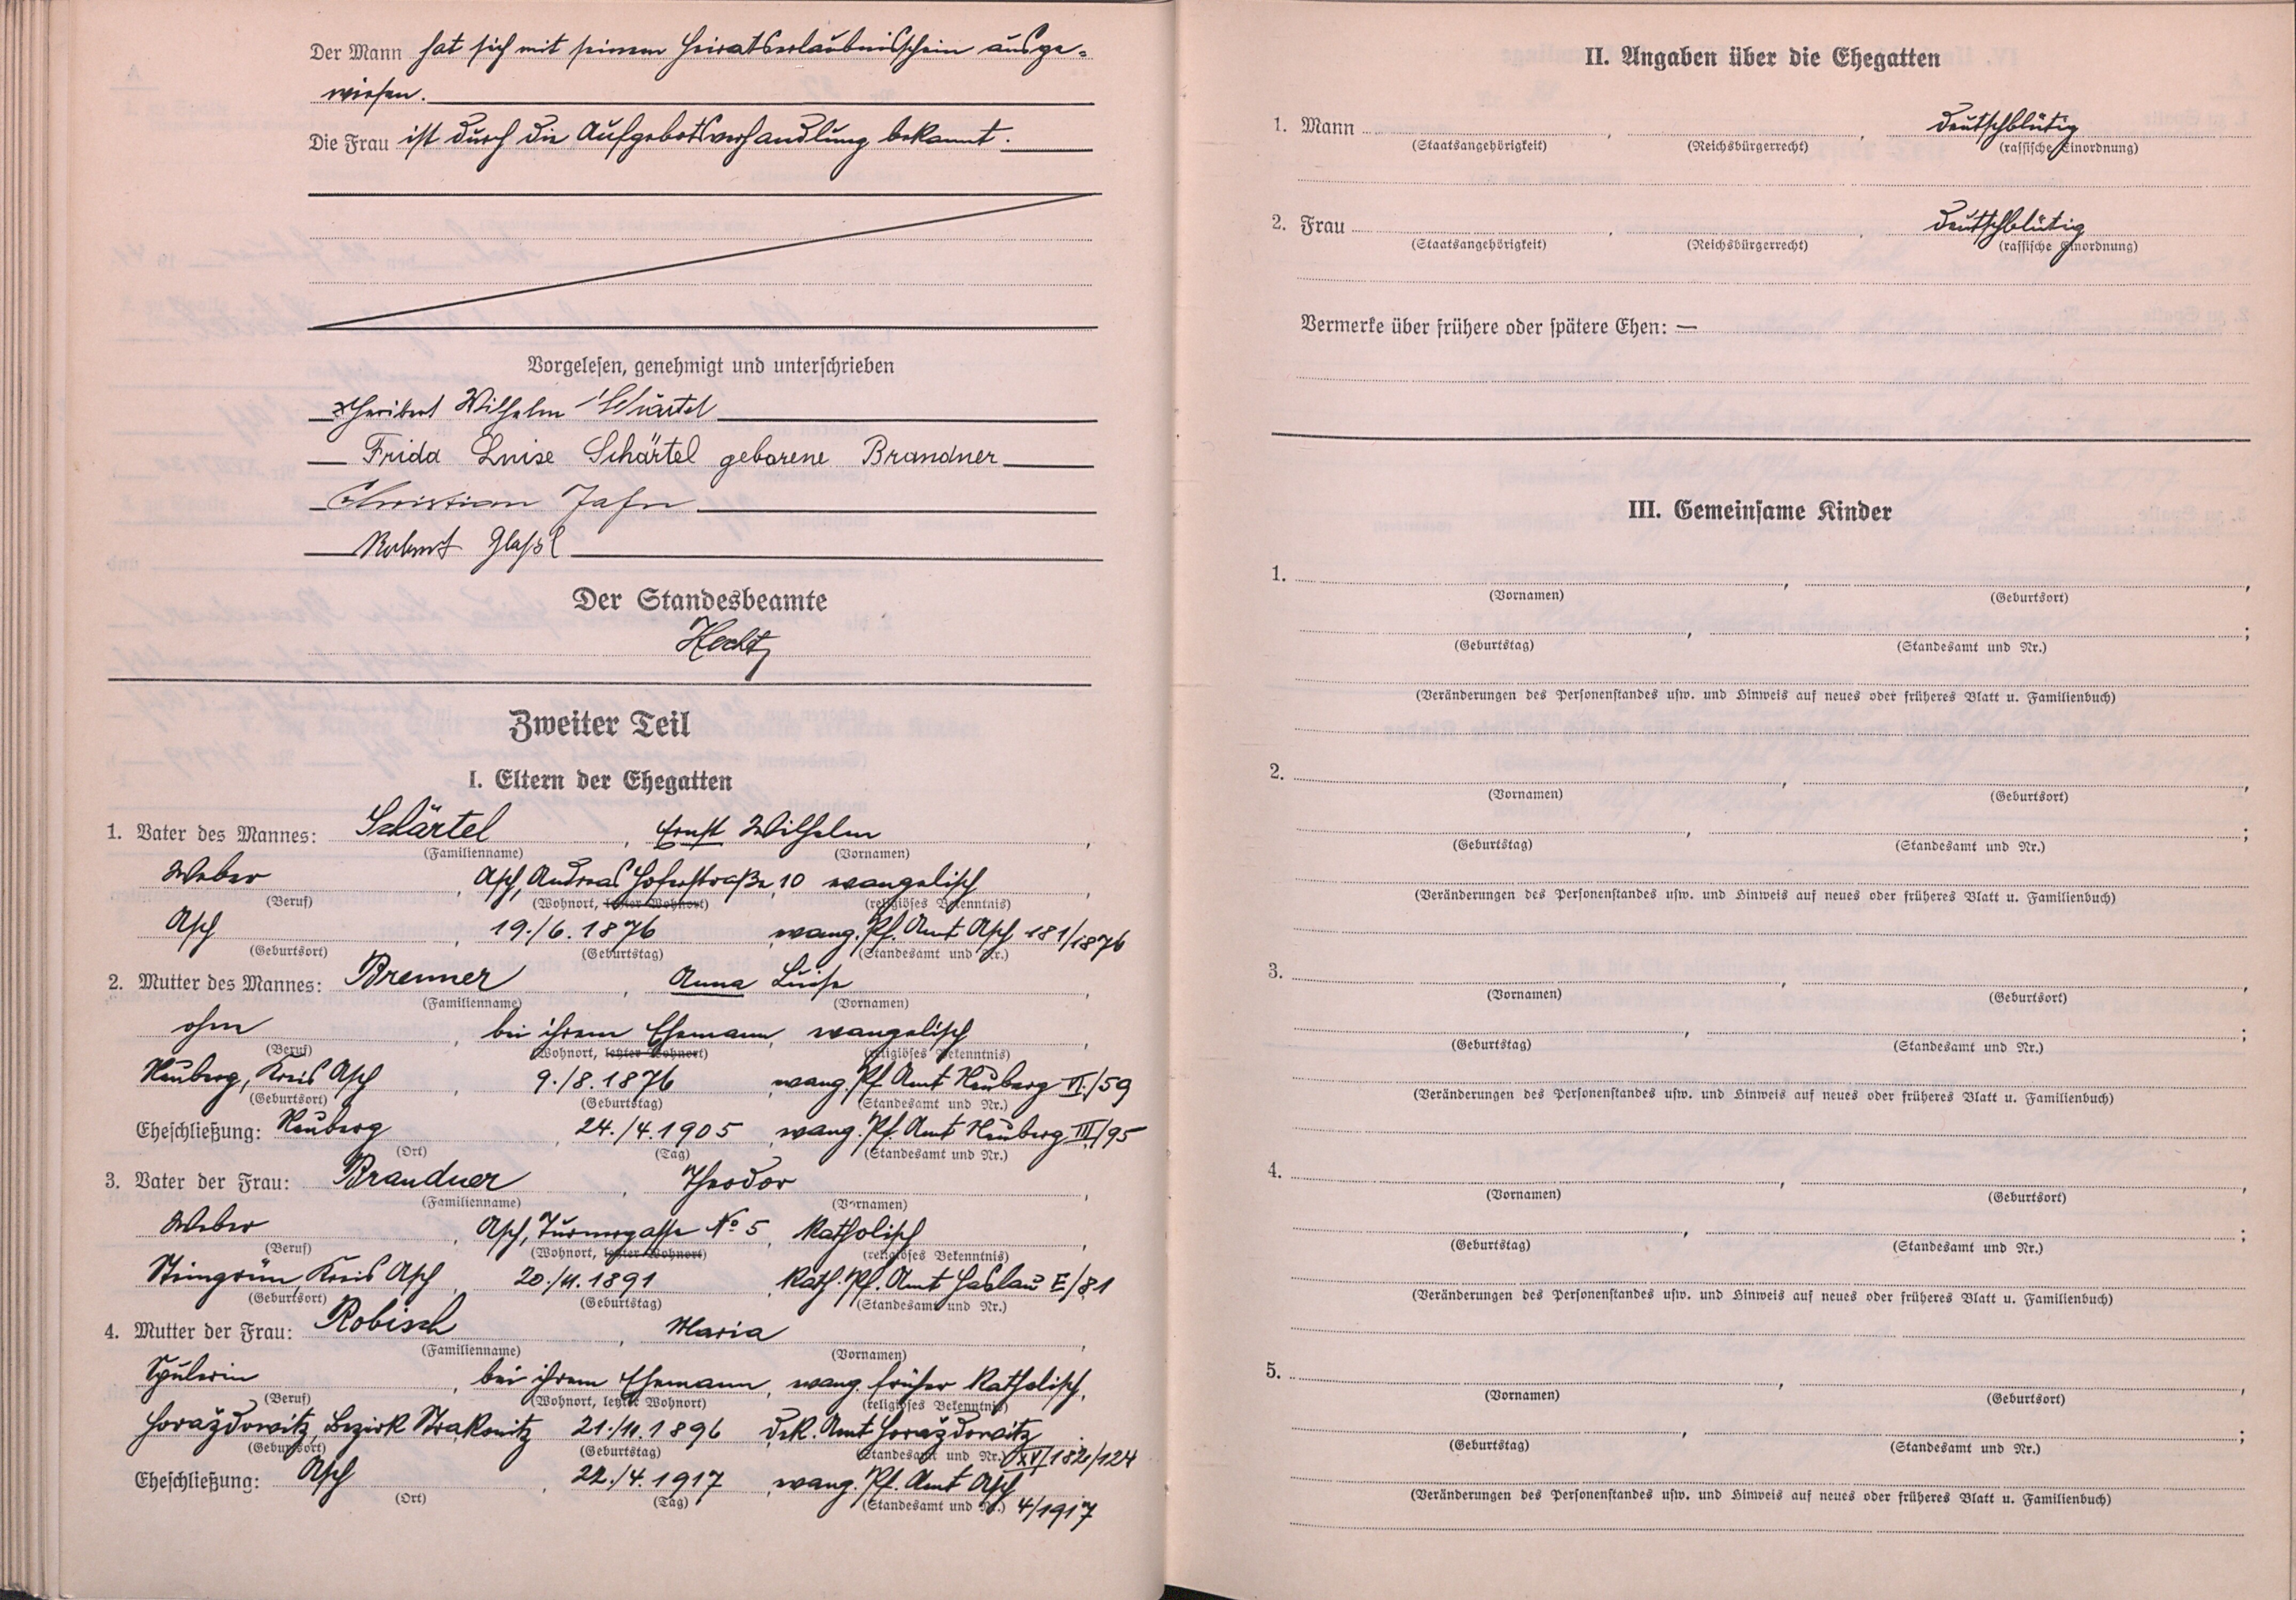 Der Mann hat sich mit seinem Heiratserlaubnisschein ausge-
wiesen.
Die Frau ist durch die Aufgebotsverhandlung bekannt.
Vorgelesen, genehmigt und unterschrieben
Heribert Wilhelm Schärtel
Frida Luise Schärtel geborene Brandner
Christian Jahn
Robert Glaßl
Der Standesbeamte
Hecht
Zweiter Teil
I. Eltern der Ehegatten
1. Vater des Mannes: Schärtel, Ernst Wilhelm,
(Familienname) (Vornamen)
Weber, Asch, Andreas Hoferstraße 10 evangelisch,
(Beruf) (Wohnort, letzter Wohnort) (religiöses Bekenntnis)
Asch, 19./6.1876, evang. Pf. Amt Asch 181/1876
(Geburtsort) (Geburtstag) (Standesamt und Nr.)
2. Mutter des Mannes: Brenner, Anna Luise,
(Familienname) (Vornamen)
ohne, bei ihrem Ehemann, evangelisch,
(Beruf) (Wohnort, letzter Wohnort) (religiöses Bekenntnis)
Neuberg, Kreis Asch, 9./8.1876, evang. Pf. Amt Neuberg VI./59
(Geburtsort) (Geburtstag) (Standesamt und Nr.)
Eheschließung: Neuberg, 24./4.1905, evang. Pf. Amt Neuberg III/95
(Ort) (Tag) (Standesamt und Nr.)
3. Vater der Frau: Brandner, Theodor,
(Familienname) (Vornamen)
Weber, Asch, Turnergasse No 5, katholisch,
(Beruf) (Wohnort, letzter Wohnort) (religiöses Bekenntnis)
Steingrün, Kreis Asch, 20./11.1891, kath. Pf. Amt Haslau E/81
(Geburtsort) (Geburtstag) (Standesamt und Nr.)
4. Mutter der Frau: Robisch, Maria,
(Familienname) (Vornamen)
Spulerin, bei ihrem Ehemann, evang. früher katholisch,
(Beruf) (Wohnort, letzter Wohnort) (religiöses Bekenntnis)
Horaždowitz, Bezirk Strakonitz 21./11.1896 Dek. Amt Horaždowitz
(Geburtsort) (Geburtstag) (Standesamt und Nr.) XV/182/124
Eheschließung: Asch, 22./4.1917, evang. Pf. Amt Asch
(Ort) (Tag) (Standesamt und Nr.) 4/1917
II. Angaben über die Ehegatten
1. Mann , , deutschblütig
(Staatsangehörigkeit) (Reichsbürgerrecht) (rassische Einordnung)
2. Frau , , deutschblütig
(Staatsangehörigkeit) (Reichsbürgerrecht) (rassische Einordnung)
Vermerke über frühere oder spätere Ehen: —
III. Gemeinsame Kinder
1. , ,
(Vornamen) (Geburtsort)
, ;
(Geburtstag) (Standesamt und Nr.)
(Veränderungen des Personenstandes usw. und Hinweis auf neues oder früheres Blatt u. Familienbuch)
2. , ,
(Vornamen) (Geburtsort)
, ;
(Geburtstag) (Standesamt und Nr.)
(Veränderungen des Personenstandes usw. und Hinweis auf neues oder früheres Blatt u. Familienbuch)
3. , ,
(Vornamen) (Geburtsort)
, ;
(Geburtstag) (Standesamt und Nr.)
(Veränderungen des Personenstandes usw. und Hinweis auf neues oder früheres Blatt u. Familienbuch)
4. , ,
(Vornamen) (Geburtsort)
, ;
(Geburtstag) (Standesamt und Nr.)
(Veränderungen des Personenstandes usw. und Hinweis auf neues oder früheres Blatt u. Familienbuch)
5. , ,
(Vornamen) (Geburtsort)
, ;
(Geburtstag) (Standesamt und Nr.)
(Veränderungen des Personenstandes usw. und Hinweis auf neues oder früheres Blatt u. Familienbuch)